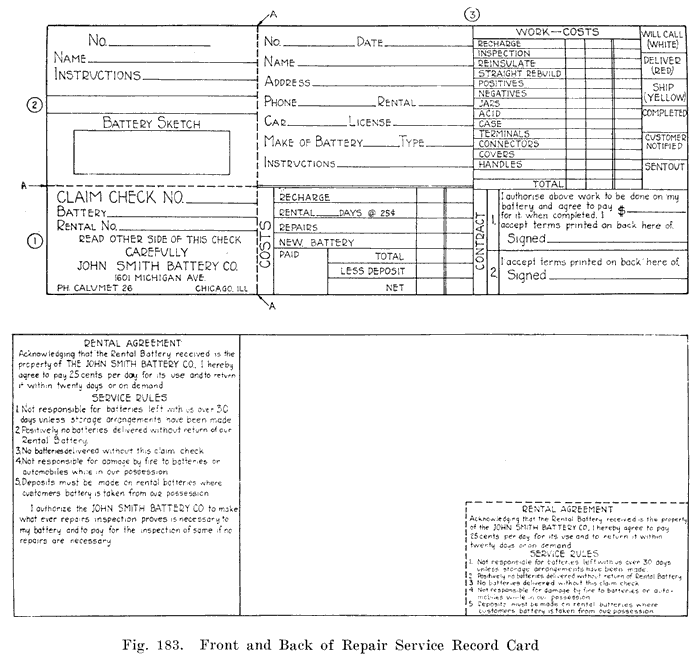 A
3
No.
Name
Instructions
2
Battery Sketch
A
1
CLAIM CHECK NO.
Battery
Rental No.
READ OTHER SIDE OF THIS CHECK
CAREFULLY
JOHN SMITH BATTERY CO.
1601 MICHIGAN AVE.
PH. CALUMET 26 CHICAGO, ILL
A
No. Date
Name
Address
Phone Rental
Car License
Make of Battery Type
Instructions
COSTS
RECHARGE
RENTAL DAYS @ 25¢
REPAIRS
NEW BATTERY
PAID TOTAL
LESS DEPOSIT
NET
WORK—COSTS
RECHARGE
INSPECTION
REINSULATE
STRAIGHT REBUILD
POSITIVES
NEGATIVES
JARS
ACID
CASE
TERMINALS
CONNECTORS
COVERS
HANDLES
TOTAL
WILL CALL
(WHITE)
DELIVER
(RED)
SHIP
(YELLOW)
COMPLETED
CUSTOMER
NOTIFIED
SENT OUT
CONTRACT
1. I authorise above work to be done on my
battery and agree to pay $
for it when completed. I
accept terms printed on back here of.
Signed
2. I accept terms printed on back here of.
Signed
RENTAL AGREEMENT
Acknowledging that the Rental Battery received is the
property of THE JOHN SMITH BATTERY CO., I hereby
agree to pay 25 cents per day for its use and to return
it within twenty days or on demand
SERVICE RULES
1. Not responsible for batteries left with us over 30
days unless storage arrangements have been made
2. Positively no batteries delivered without return of our
Rental Battery.
3. No batteries delivered without this claim check
4. Not responsible for damage by fire to batteries or
automobiles while in our possession
5. Deposits must be made on rental batteries where
customers battery is taken from our possession
I authorize the JOHN SMITH BATTERY CO to make
what ever repairs inspection proves is necessary to
my battery and to pay for the inspection of same if no
repairs are necessary
RENTAL AGREEMENT
Acknowledging that the Rental Battery received is the property
of the JOHN SMITH BATTERY CO., I hereby agree to pay
25 cents per day for its use and to return it within
twenty days or on demand
SERVICE RULES
1. Not responsible for batteries left with us over 30 days
unless storage arrangements have been made.
2 Positively no batteries delivered without return of Rental Battery
3 No batteries delivered without this claim check
4 Not responsible for damage by fire to batteries or auto-
mobiles while in our possession
5 Deposits must be made on rental batteries where
customers battery is taken from our possession
Fig. 183. Front and Back of Repair Service Record Card